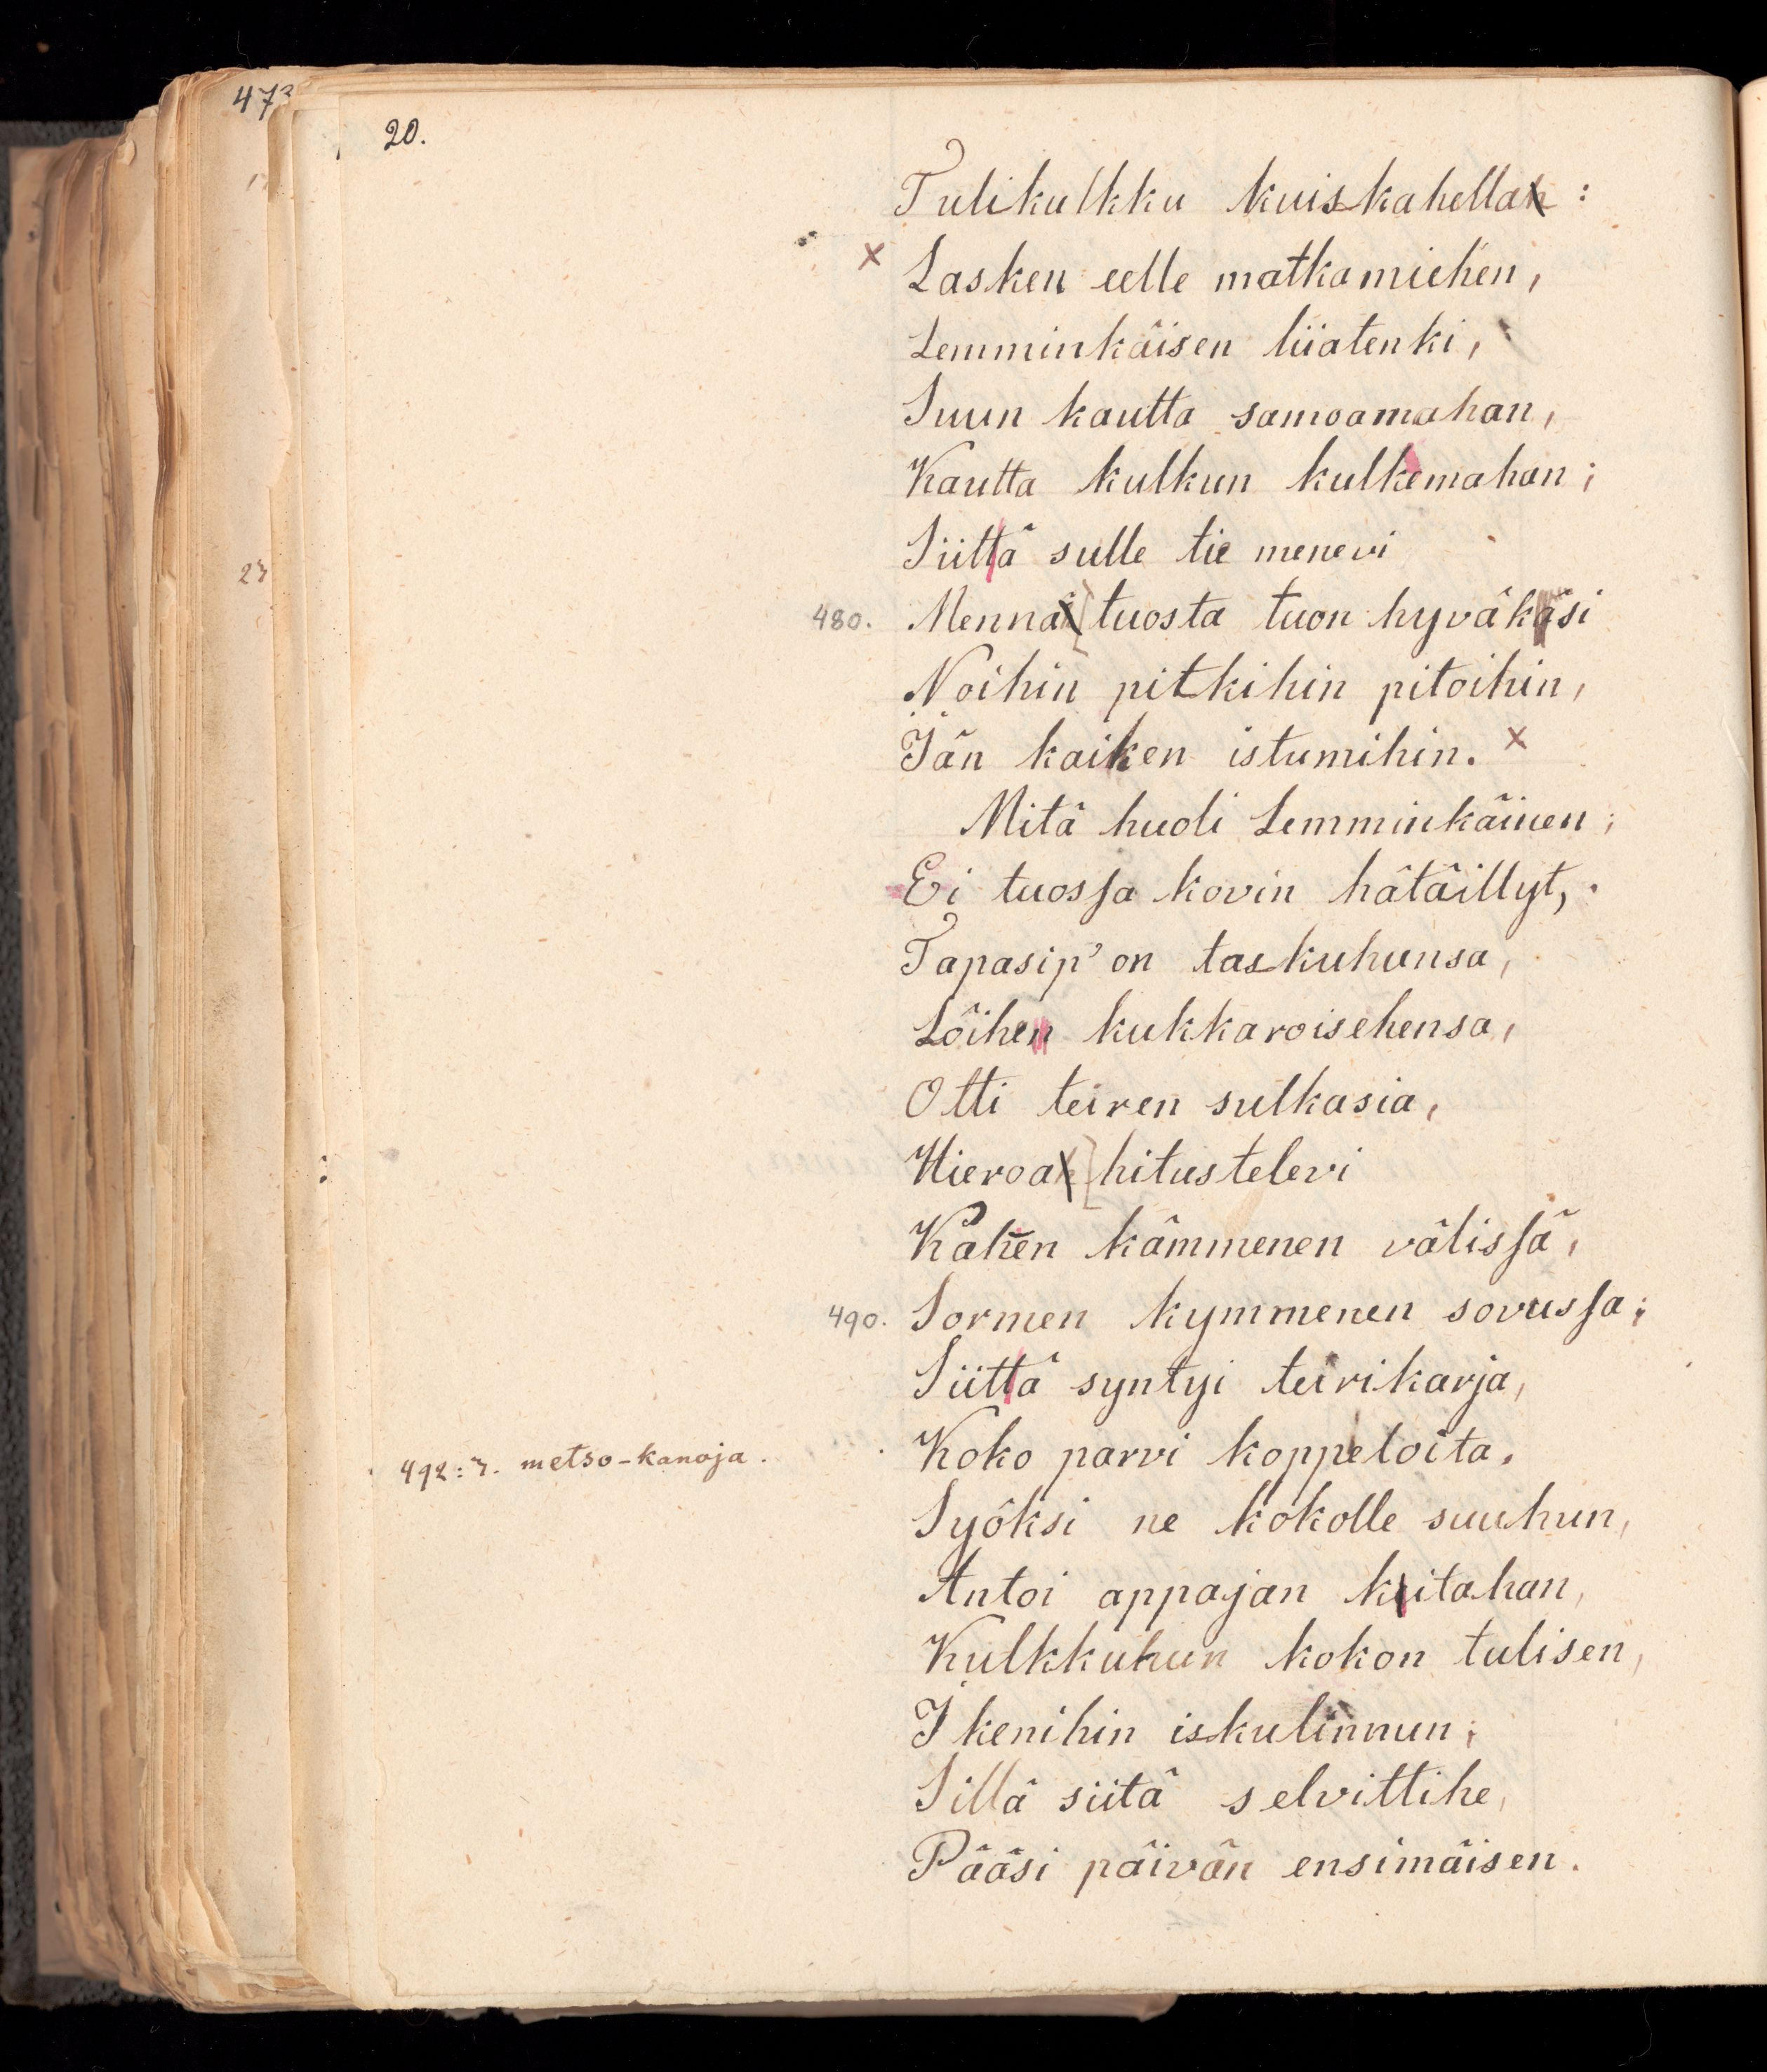 473
20.
23
Tulikulkku kuiskahella :
× Lasken eelle matkamiehen,
Lemminkäisen liiatenki,
Suun kautta samoamahan,
Kautta kulkun kulkemahan;
Siittä sulle tie menevi
480. Menna [tuosta tuon hyväkäsi
Noihin pitkihin pitoihin,
Iän kaiken istumihin. ×
Mitä huoli Lemminkäinen;
Ei tuossa kovin hätäillyt,
Tapasip' on taskuhunsa,
Löihen kukkaroisehensa,
Otti teiren sulkasia,
Hieroa [hitustelevi
Kahen kämmenen välissä,
490. Sormen kymmenen sovussa;
Siittä syntyi teirikarja,
492: 7. metso-kanoja.
Koko parvi koppeloita.
Syöksi ne kokolle suuhun,
Antoi appajan kitahan,
Kulkkuhun kokon tulisen,
Ikenihin iskulinnun;
Sillä siitä selvittihe,
Pääsi päivän ensimäisen.